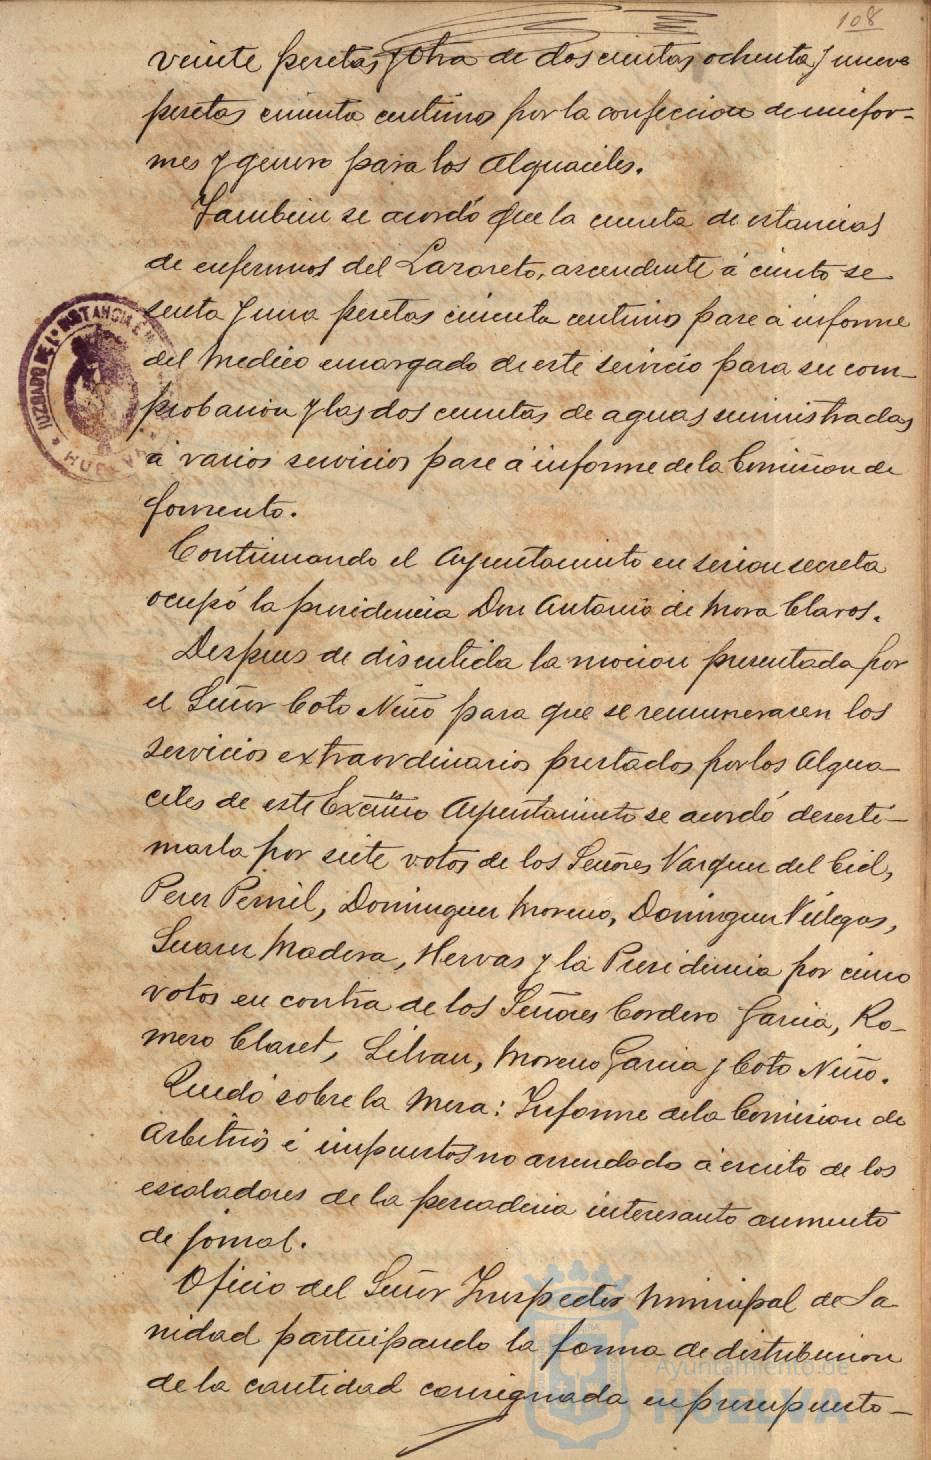 108
veinte pesetas, y otra de doscientas ochenta y nueve
pesetas cincuenta centimos por la confeccion de unifor-
mes y genero para los Alguaciles.
Tambien se acordó que la cuenta de estancias
de enfermos del Lazareto, ascendente á ciento se
senta y una pesetas cincuenta centimos pase á informe
del Medico encargado de este servicio para su com-
probacion y las dos cuentas de aguas suministradas
á varios servicios pase á informe de la Comision de
fomento.
Continuando el Ayuntamiento en sesion secreta
ocupó la presidencia Don Antonio de Mora Claros.
Despues de discutida la mocion presentada por
el Señor Coto Niño para que se remunerasen los
servicios extraordinarios prestados por los Algua-
ciles de este Excmo Ayuntamiento se acordó desesti-
marla por siete votos de los Señores Vazquez del Cid,
Perez Pernil, Dominguez Moreno, Dominguez Villegas,
Suarez Madera, Hervas y la Presidencia por cinco
votos en contra de los Señores Cordero Garcia, Ro-
mero Claret, Silvan, Moreno Garcia y Coto Niño.
Quedó sobre la Mesa: Informe de la Comision de
Arbitrios é impuestos no arrendado á escrito de los
escaladores de la pescaderia interesando aumento
de jornal.
Oficio del Señor Inspector Municipal de Sa
nidad participando la forma de distribucion
de la cantidad consignada en presupuesto-
JUZGADO DE 1ª INSTANCIA E
HUELVA
Ayuntamiento de
HUELVA